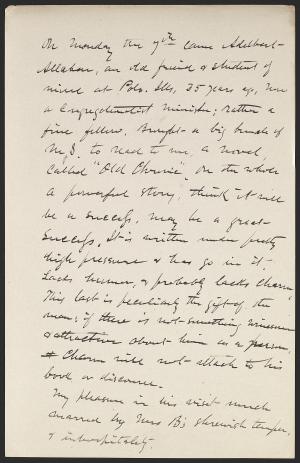 On Monday the 7th came Adelbert
Allaben, an old friend & student of
mine at Pols. Ills, 25 years ago, now
a Congregationalist minister; rather a
fine fellow, brought a big bundle of
M.S. to read to me, a novel,
called "Old Chronic", on the whole
a powerful story; think it will
be a success, may be a great
success. It is written under pretty
high pressure & has go in it.
Lacks humor, & probably lacks charm.
This last is peculiarly the gift of the
man; if there is not something winsome
& attractive about him as a person,
Charm will not attach to his
book or discourse.
My pleasure in his visit much
marred by Mrs B's shrewish temper,
& inhospitality.